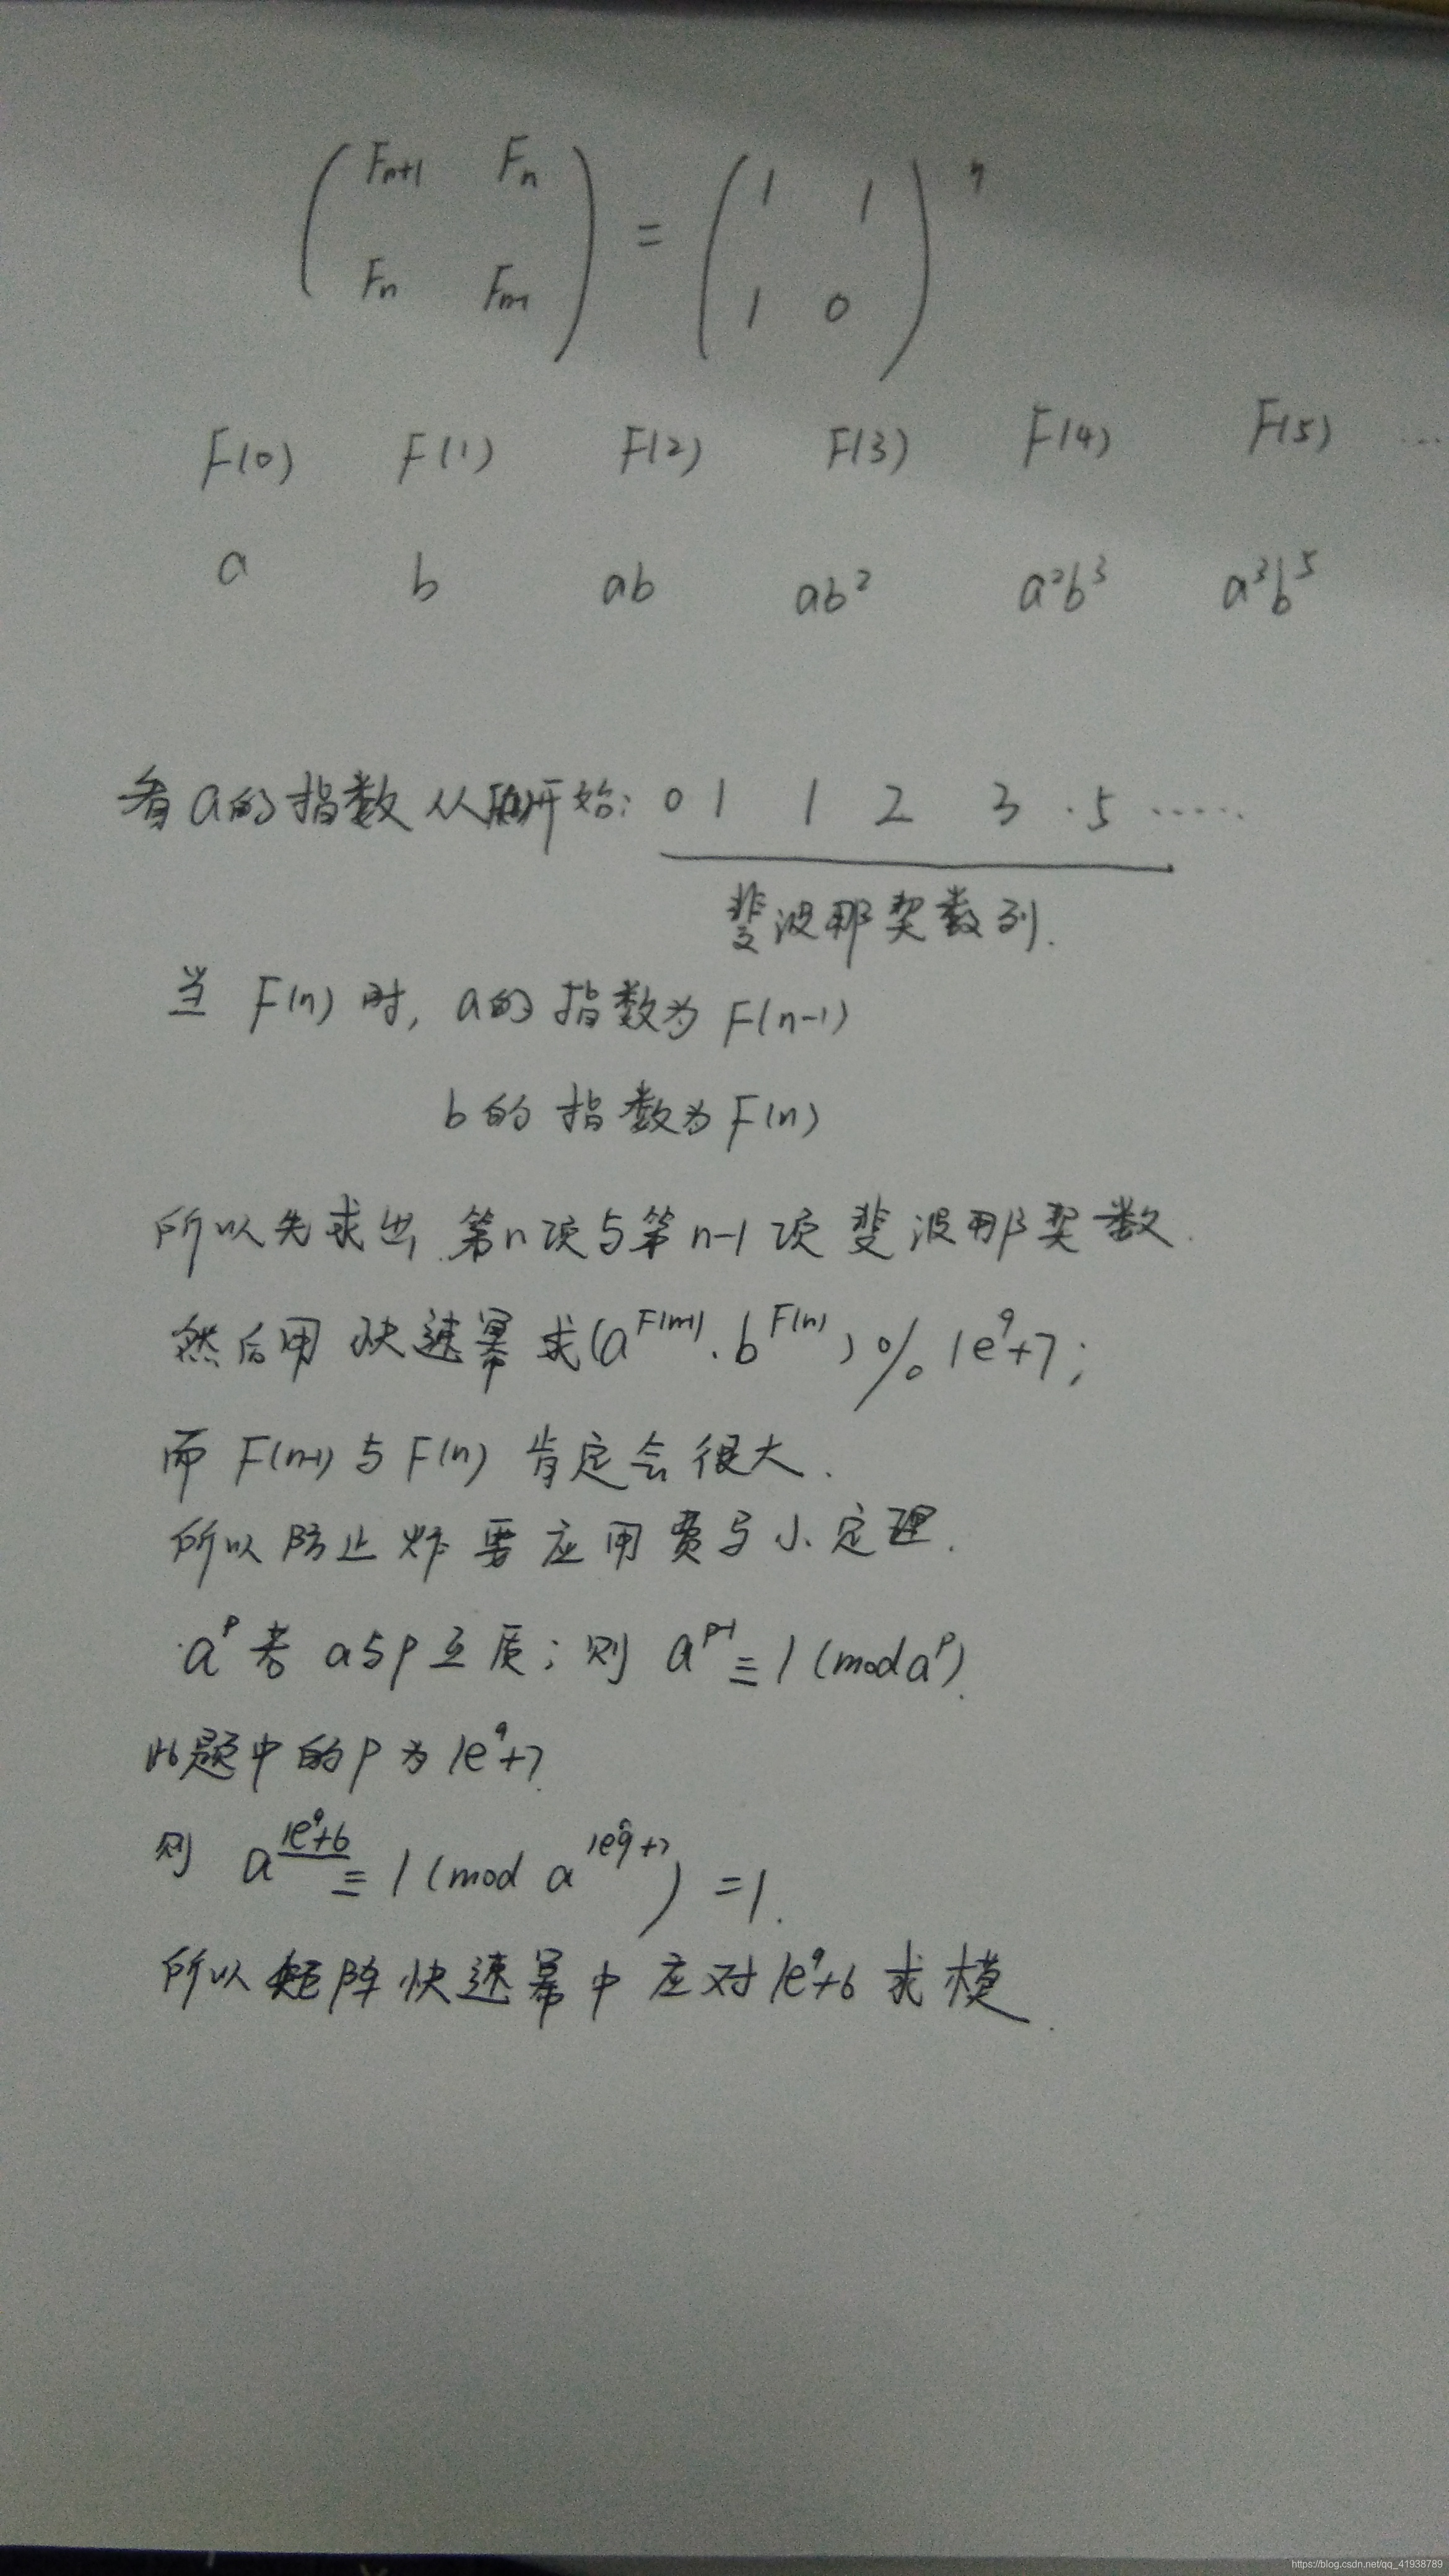 ( Fn+1 Fn ) = ( 1 1 ) n
( Fn Fn-1 ) ( 1 0 )
F(0) F(1) F(2) F(3) F(4) F(5) ...
a b ab ab² a²b³ a³b⁵
看a的指数从 开始: 0 1 1 2 3 .5 ......
斐波那契数列.
当 F(n) 时, a的指数为 F(n-1)
b的指数为F(n)
所以先求出.第n项与第n-1项斐波那契数.
然后用快速幂求(a^F(n-1).b^F(n))% 1e⁹+7;
而 F(n-1)与F(n) 肯定会很大.
所以防止炸要应用费马小定理.
.a^p 若 a与p互质; 则 a^p-1≡1 (mod a^p).
此题中的p为1e⁹+7.
则 a^1e⁹+6≡1 (mod a^1e9+7) =1.
所以矩阵快速幂中应对1e⁹+6求模.
https://blog.csdn.net/qq_41938789